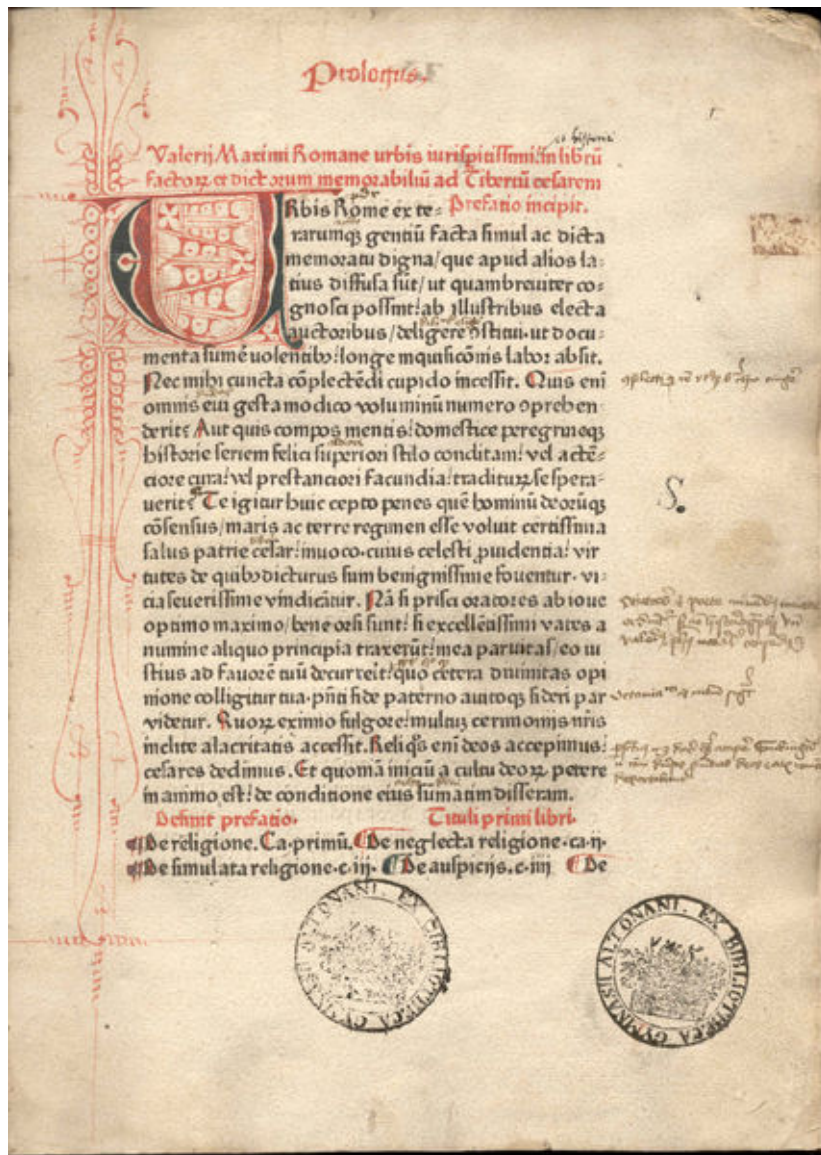 Prologus.
Valerij Maximi Romane urbis iurispitissimi: in librū
factoꝝ et dictorum memorabiliū ad Tiberiū cesarem
Prefatio incipit.
URbis Rome exte⸗
rarumqꝫ gentiū facta simul ac dicta
memoratu digna/que apud alios la⸗
tius diffusa sūt/ut quambreuiter co⸗
gnosci possint: ab illustribus electa
auctoribus/deligere ꝯstitui·ut docu⸗
menta sumē uolentibꝰ: longe inquisicōnis labor absit.
Nec mihi cuncta cōplectēdi cupido incessit. Quis eni
omnis eui gesta modico voluminū numero ꝯprehen
derit? Aut quis compos mentis: domestice peregrineqꝫ
historie seriem felici superiori stilo conditam: vel actē⸗
ciore cura: vel prestanciori facundia: traditurꝫ se spera⸗
uerit? Te igitur huic cepto penes quē hominū deorūqꝫ
cōsensus/maris ac terre regimen esse voluit certissima
salus patrie cesar: inuoco·cuius celesti ꝓuidentia: vir
tutes de quibꝰ dicturus sum benignissime fouentur·vi⸗
cia seuerissime vindicātur. Nā si prisci oratores ab ioue
optimo maximo/bene orsi sunt: si excellētissimi vates a
numine aliquo principia traxerūt: mea paruitas/eo iu
stius ad fauorē tuū decurrerit: quo cetera diuinitas opi
nione colligitur tua·pn̄ti fide paterno auitoqꝫ sideri par
videtur. Quoꝝ eximio fulgore: multuꝫ cerimoniis nr̄is
inclite alacritatis accessit. Reliqͦs eni deos accepimus:
cesares dedimus. Et quoniā iniciū a cultu deoꝝ petere
in animo est: de conditione eius sūmatim disseram.
Definit prefatio. Tituli primi libri.
De religione. Ca·primū. De neglecta religione·ca·ij·
De simulata religione·c·iij· De auspicijs·c·iiij De
S.
GYMNASII ALTONANI. EX BIBLIOTHECA
GYMNASII ALTONANI. EX BIBLIOTHECA